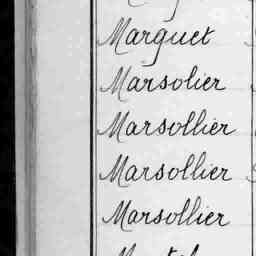 Marguet
Marsolier
Marsollier
Marsollier
Marsollier